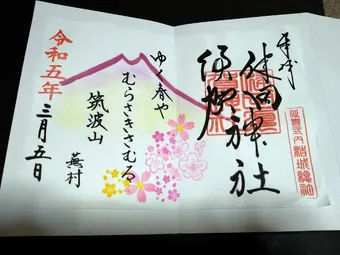 奉拝
健田
須賀
神社
延喜式内
ゆく春や
むらさきさむる
筑波山
蕪村
令和五年
三月五日